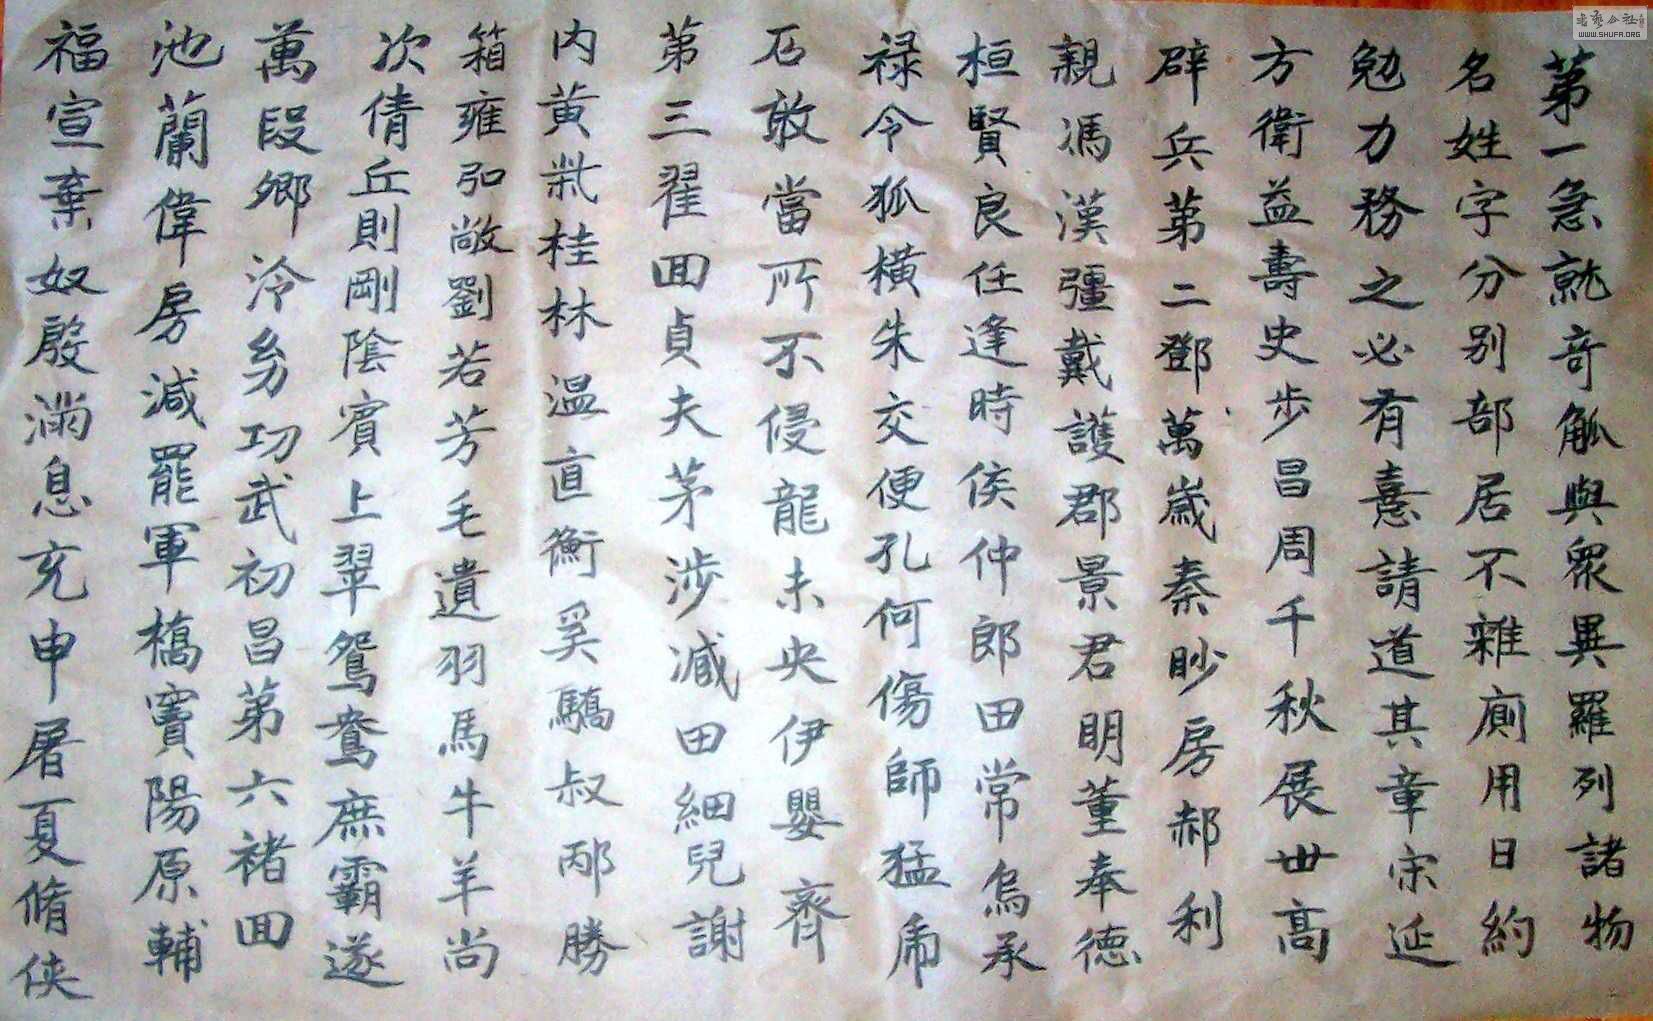 第一急就奇觚與眾異羅列諸物
名姓字分别部居不雜廁用日約
勉力務之必有憙請道其章宋延
方衛益壽史步昌周千秋展世高
辟兵第二鄧萬歲秦眇房郝利
親馮漢彊戴護郡景君明董奉德
桓賢良任逢時侯仲郎田常烏承
禄令狐橫朱交便孔何傷師猛虎
石敢當所不侵龍未央伊嬰齊
第三翟回貞夫茅涉臧田細兒謝
内黄柴桂林温直衡奚驕叔邴勝
箱雍弘敞劉若芳毛遺羽馬牛羊尚
次倩丘則剛陰賓上翠鴛鴦庶霸遂
萬段卿泠幼功武初昌第六褚回
池蘭偉房減罷軍橋竇陽原輔
福宣棄奴殷滿息充申屠夏脩俠
書藝公社
WWW.SHUFA.ORG